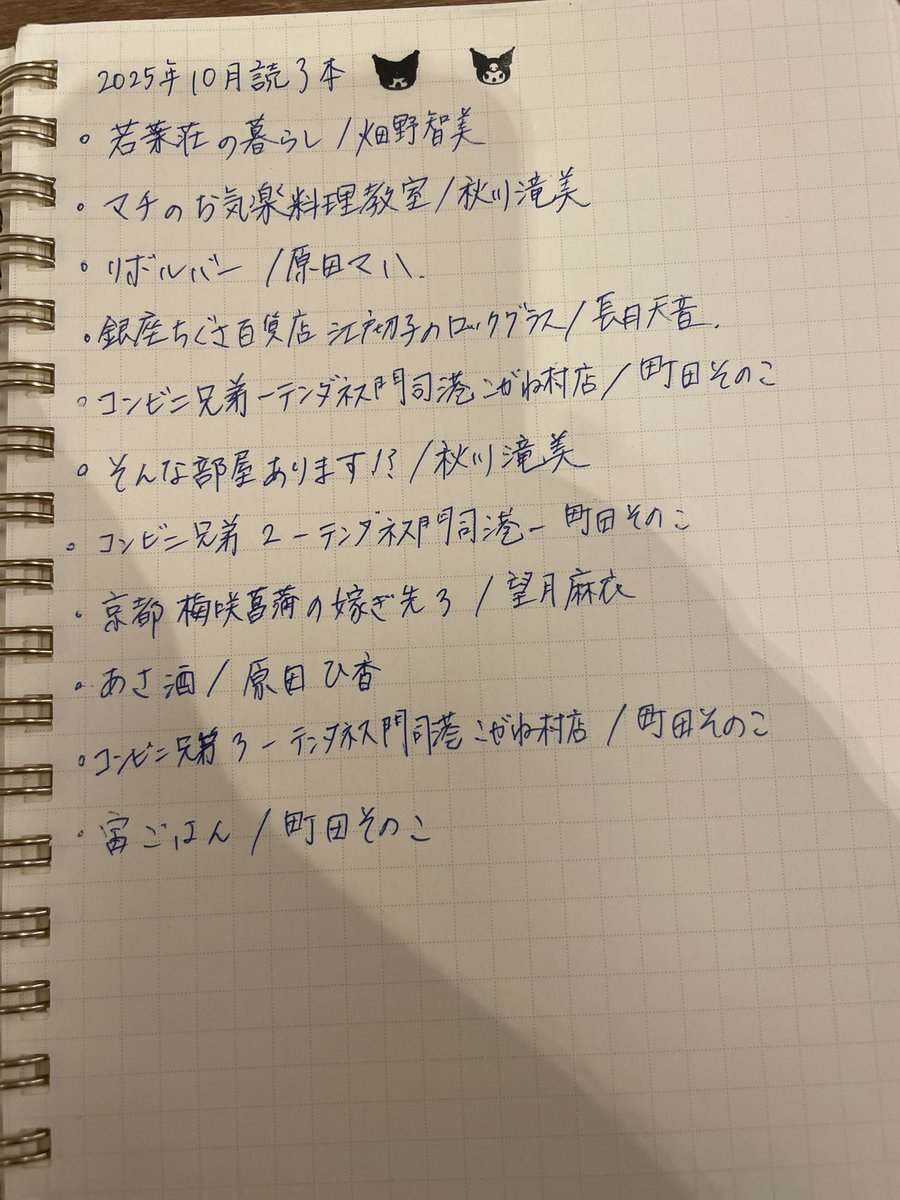 2025年10月読3本
。若葉荘の暮らし/畑野智美
・マチのお気楽料理教室/秋川滝美
・リボルバー/原田マハ.
・銀座ちぐさ百貨店 江戸切子のロックグラス/長月天音.
。コンビニ兄弟ーテンダネス門司港こがね村店/町田そのこ
。そんな部屋あります!?/秋川滝美
。コンビニ兄弟2ーテンダネス門司港ー 町田そのこ
・京都 梅咲菖蒲の嫁ぎ先3/望月麻衣
・あさ酒/原田ひ香
・コンビニ兄弟3ーテンダネス門司港こがね村店/町田そのこ
・宙ごはん/町田そのこ